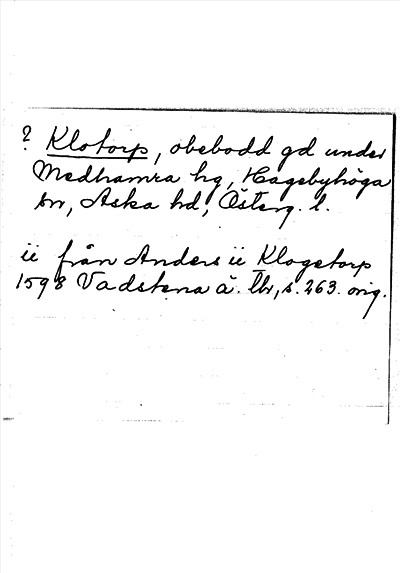 ? Klotorp, obebodd gd under
Medhamra hg, Hagebyhöga
sn, Aska hd, Österg. l.
ii från Anders ii Klogetorp
1598 Vadstena ä. tbr, s. 263. orig.